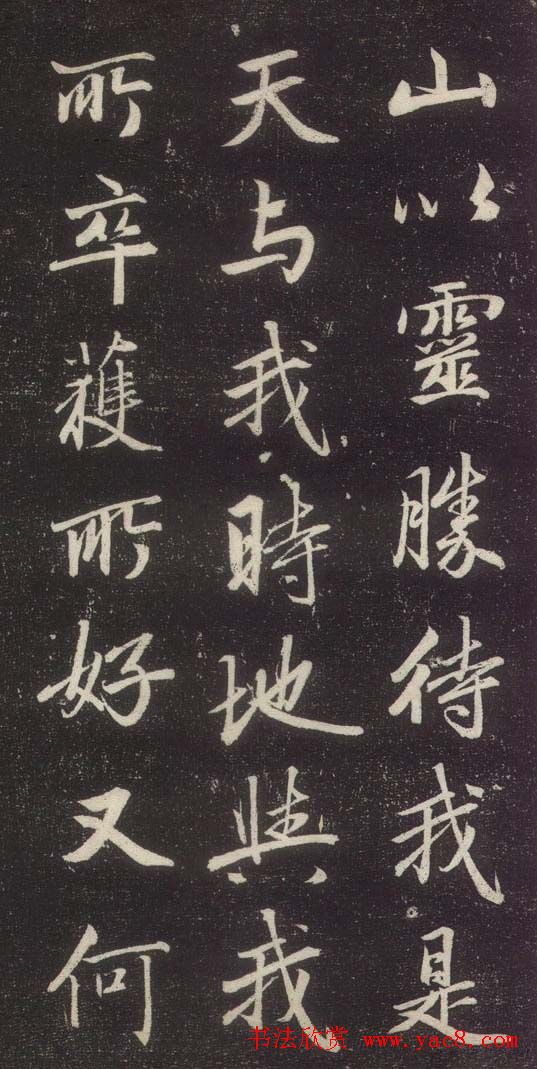 山以靈勝待我是
天与我時地與我
所卒蒦所好又何
书法欣赏 www.yac8.com